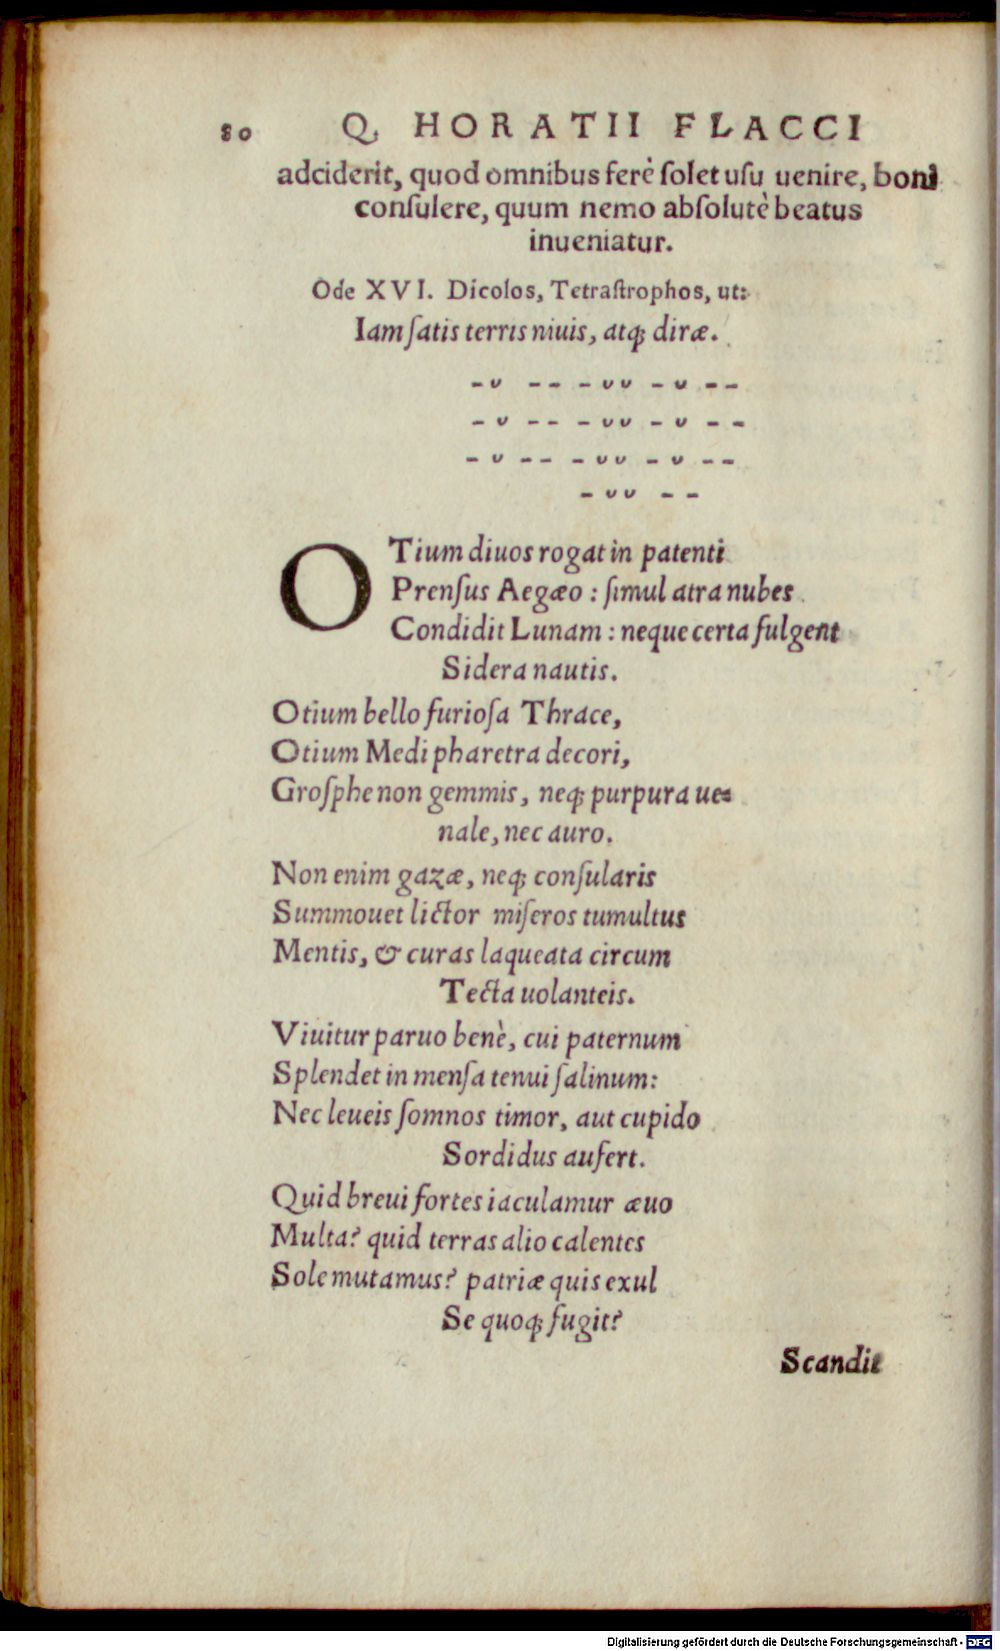 80 Q. HORATII FLACCI
adciderit, quod omnibus ferè ſolet uſu uenire, boni
conſulere, quum nemo abſolutè beatus
inueniatur.
Ode XVI. Dicolos, Tetraſtrophos, ut:
Iam ſatis terris niuis, atq; diræ.
– ᴗ – – – ᴗ ᴗ – ᴗ – –
– ᴗ – – – ᴗ ᴗ – ᴗ – –
– ᴗ – – – ᴗ ᴗ – ᴗ – –
– ᴗ ᴗ – –
OTium diuos rogat in patenti
Prenſus Aegæo : ſimul atra nubes
Condidit Lunam : neque certa fulgent
Sidera nautis.
Otium bello furioſa Thrace,
Otium Medi pharetra decori,
Groſphe non gemmis, neq; purpura ue=
nale, nec auro.
Non enim gazæ, neq; conſularis
Summouet lictor miſeros tumultus
Mentis, & curas laqueata circum
Tecta uolanteis.
Viuitur paruo benè, cui paternum
Splendet in menſa tenui ſalinum:
Nec leueis ſomnos timor, aut cupido
Sordidus aufert.
Quid breui fortes iaculamur æuo
Multa? quid terras alio calentes
Sole mutamus? patriæ quis exul
Se quoq; fugit?
Scandit
Digitalisierung gefördert durch die Deutsche Forschungsgemeinschaft - DFG